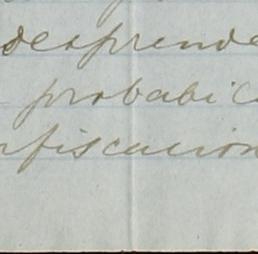 desprende
probabi
nfiscacion